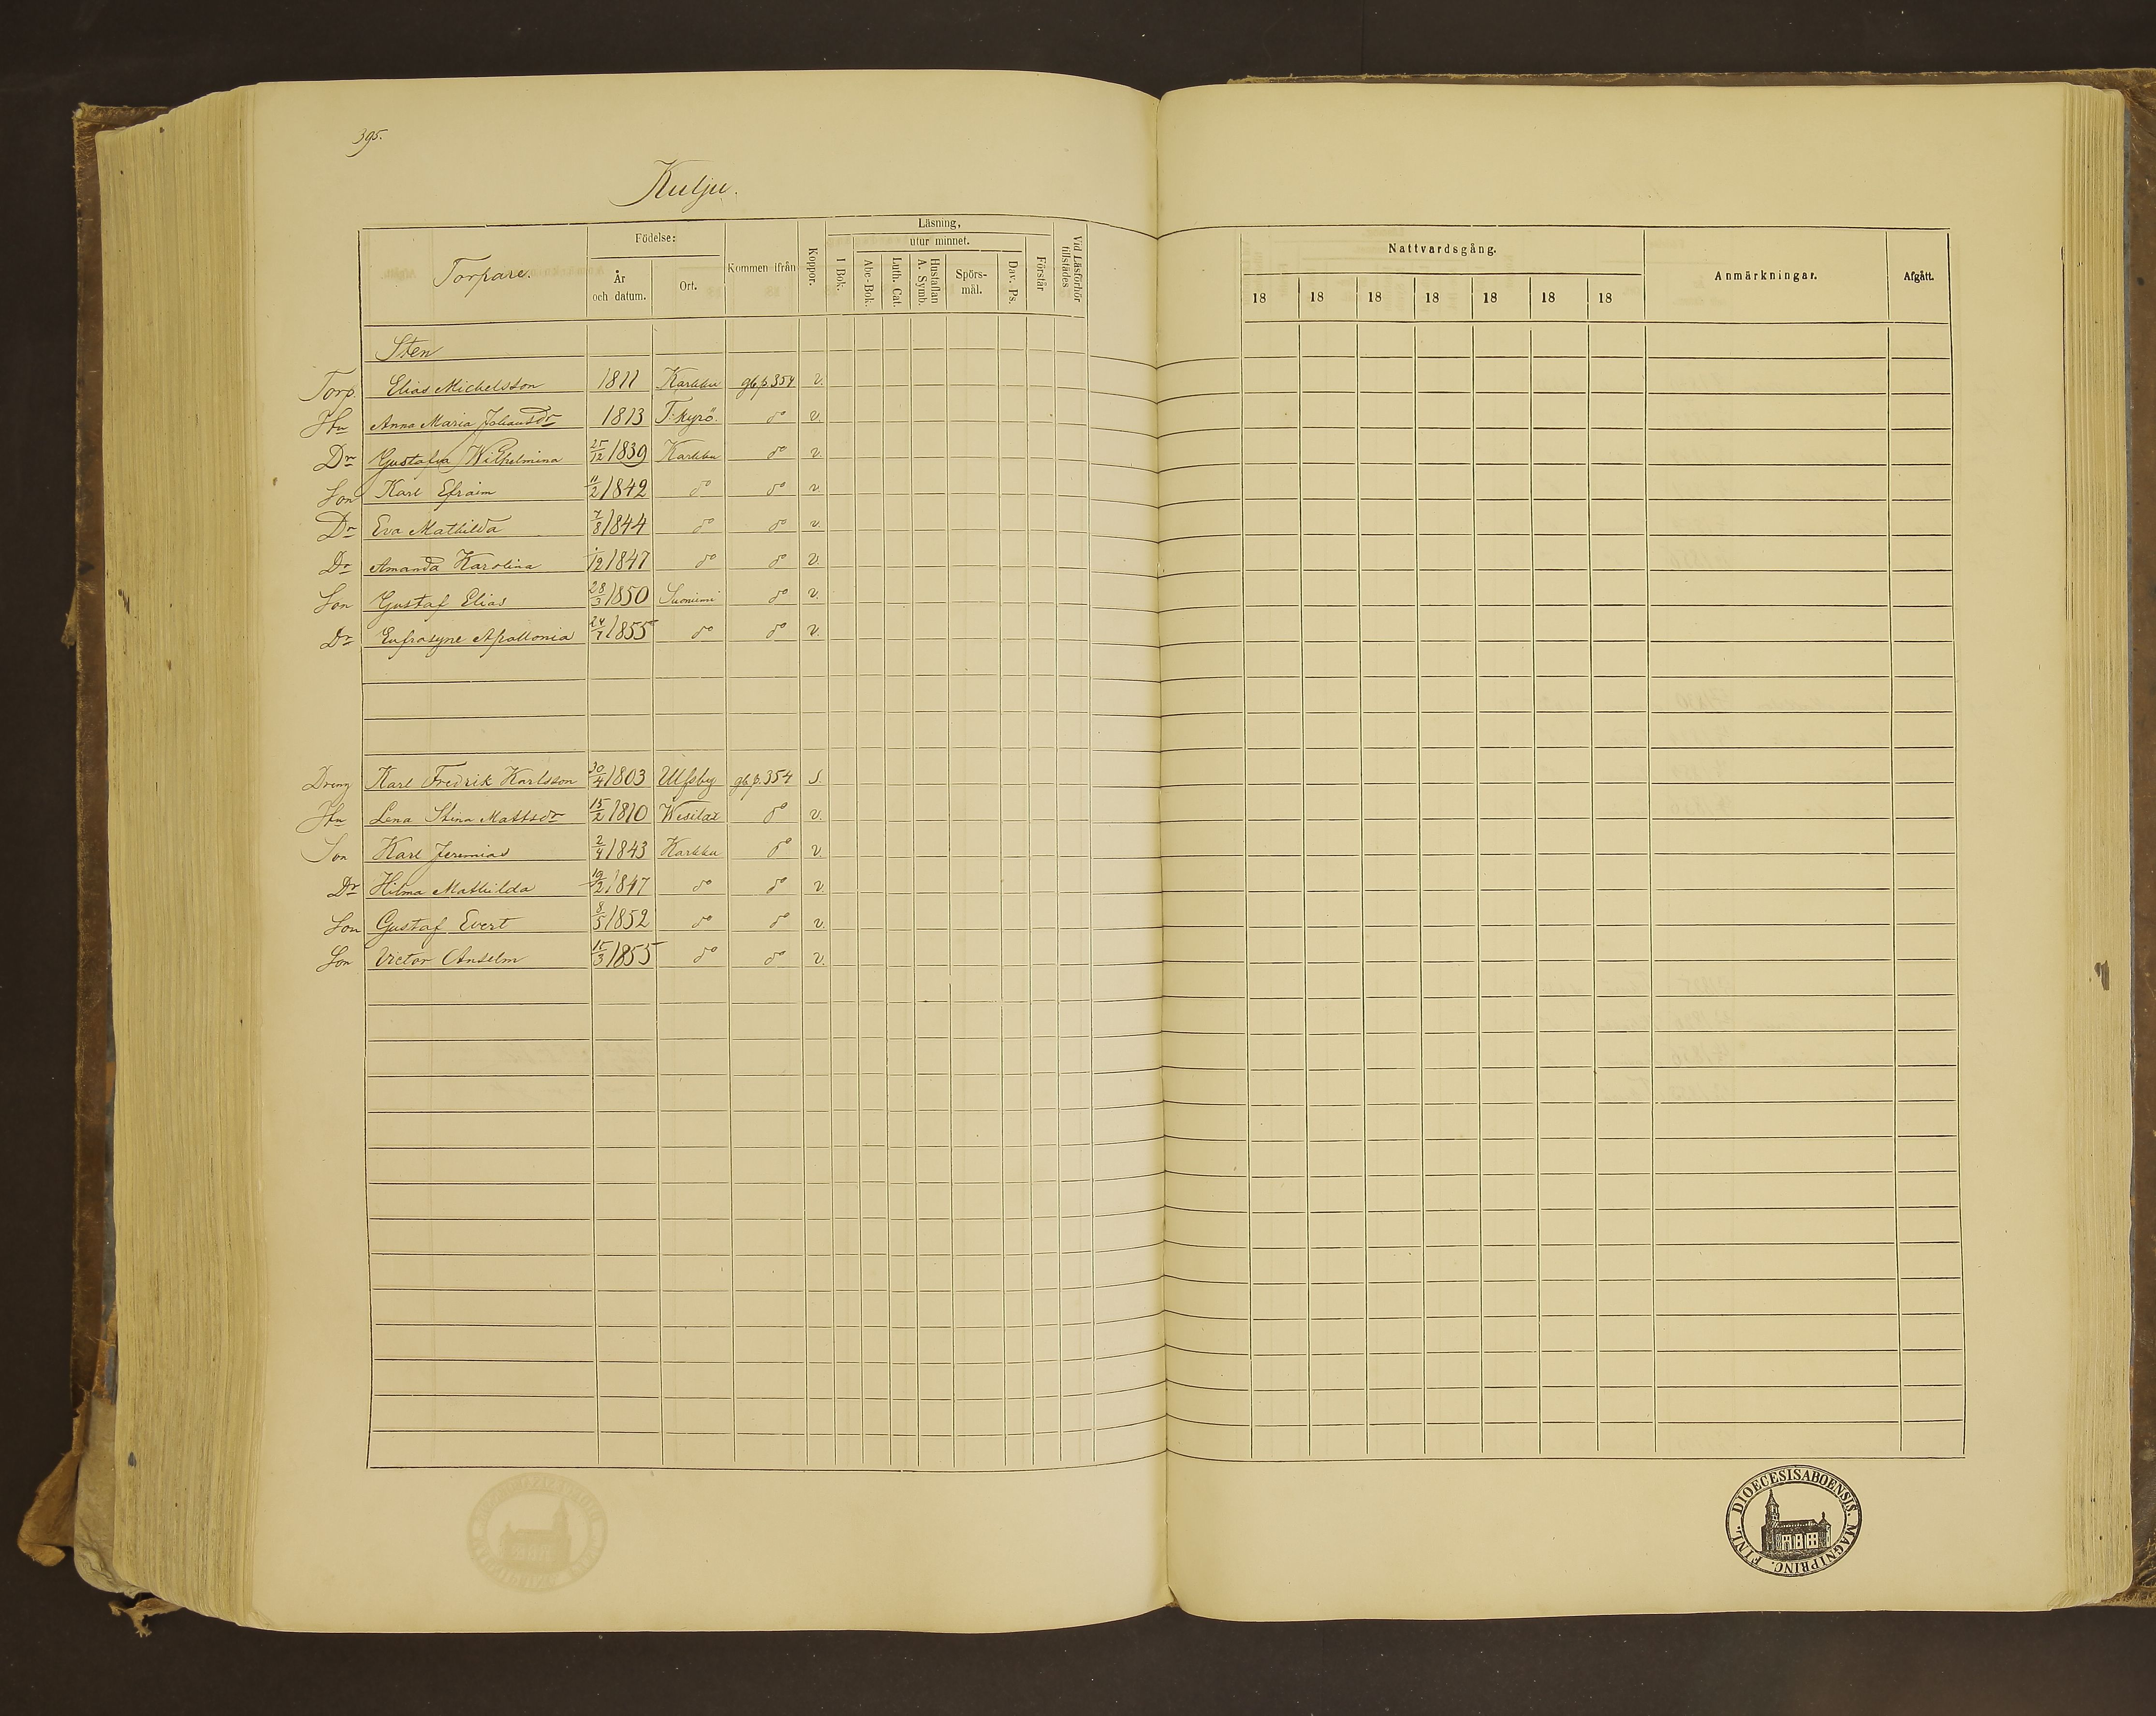 395.
Kulju.
Torpare. Födelse: År och datum. Ort. Kommen ifrån Koppor. Läsning, utur minnet. I Bok. Abc-Bok. Luth. Cat. Hustaflan A. Symb. Spörs-mål. Dav. Ps. Förstår Vid Läsförhör tillstädes Nattvardsgång. 18 18 18 18 18 18 18 Anmärkningar. Afgått.
Sten
Torp. Elias Michelsson 1811 Karkku gb p 354 v.
Hu Anna Maria Johansdr 1813 T:kyrö. do v.
Dr Gustafva Wilhelmina 25/12 1839 Karkku do v.
Son Karl Efraim 11/2 1842 do do v.
Dr Eva Mathilda 7/8 1844 do do v.
Dr Amanda Karolina 1/12 1847 do do v.
Son Gustaf Elias 28/3 1850 Suoniemi do v.
Dr Eufrosyne Apollonia 24/7 1855 do do v.
Dreng Karl Fredrik Karlsson 30/4 1803 Ulfsby gb p. 354 s.
Hu Lena Stina Mattsdr 15/2 1810 Wesilax do v.
Son Karl Jeremias 2/4 1843 Karkku do v.
Dr Hilma Mathilda 19/2 1847 do do v.
Son Gustaf Evert 8/5 1852 do do v.
Son Victor Anselm 15/3 1855 do do v.
FINL. DIOECESIS ABOENSIS. MAGNI PRINC.